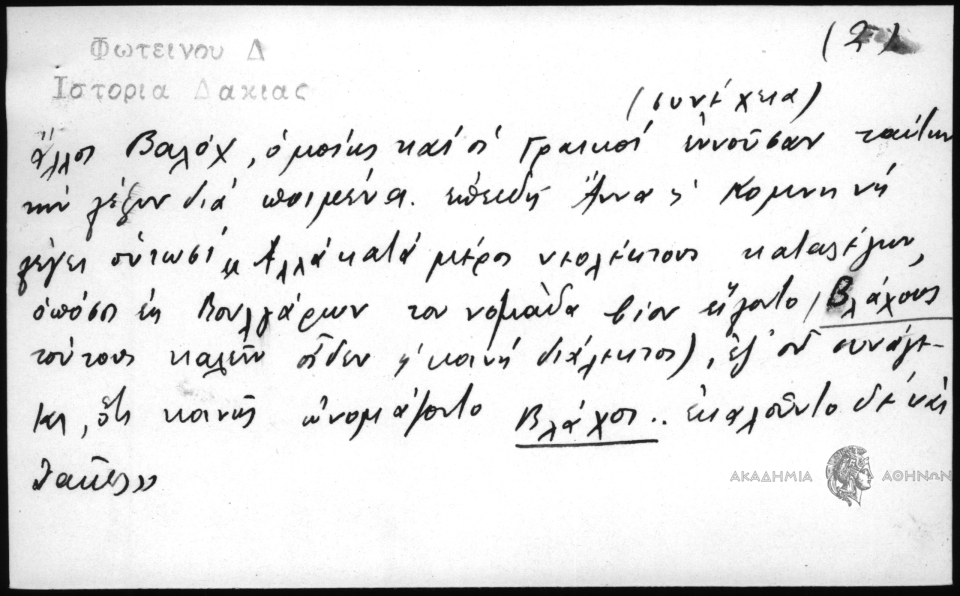 (2)
Φωτεινου Δ
Ιστορια Δακιας
(συνέχεια)
ἄλλοι Βαλόχ, ὁμοίως καί οἱ Γραικοί ἐννοῦσαν ταύτην
τήν λέξιν διά ποιμένα. ἐπειδή Ἄννα ἡ Κομνηνή
λέγει οὑτωσί "Ἀλλά κατά μέρος νεολέκτους καταλέγων,
ὁπόσοι ἐκ Βουλγάρων τον νομάδα βίον εἵλοντο (Βλάχους
τούτους καλεῖν οἶδεν ἡ κοινή διάλεκτος), ἐξ οὗ συνάγε-
ται, ὅτι κοινῶς ὠνομάζοντο Βλάχοι.. ἐκαλοῦντο δέ καί
Δακες»
ΑΚΑΔΗΜΙΑ ΑΘΗΝΩΝ